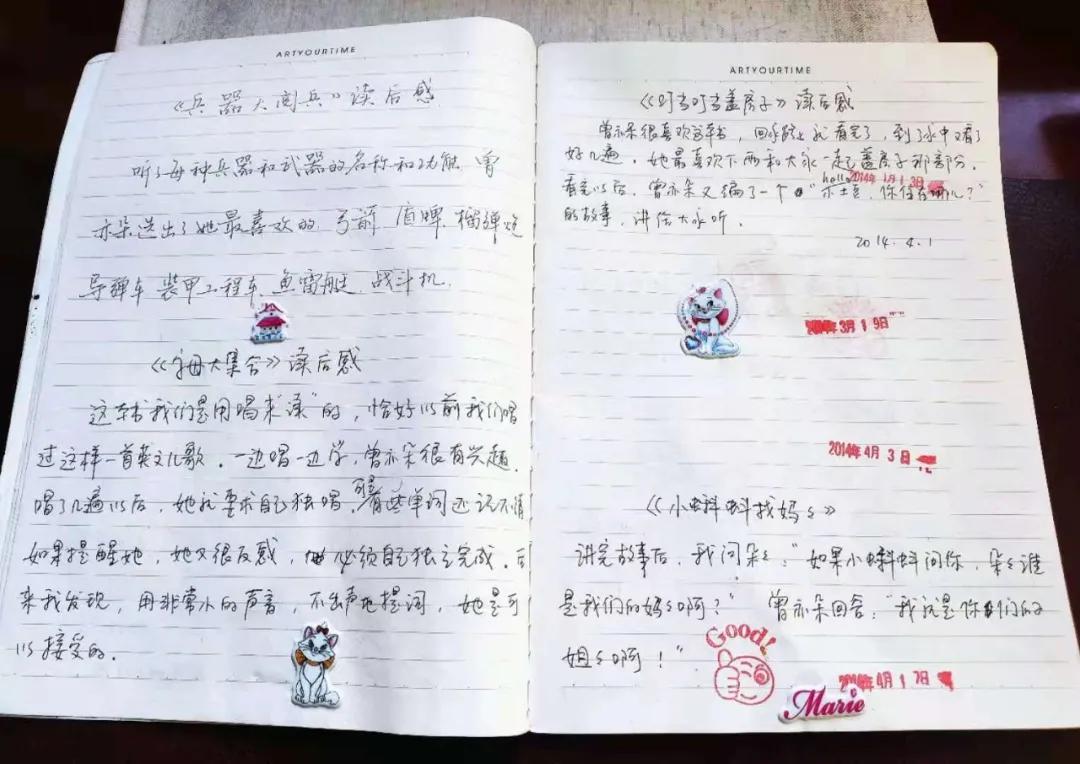 ARTYOURTIME
《兵器大阅兵》读后感
听了每种兵器和武器的名称和功能,曾
亦朵选出了她最喜欢的 弓箭 盾牌 榴弹炮
导弹车 装甲工程车、鱼雷艇、战斗机.
《字母大集合》读后感
这本书我们是用唱来"读"的,恰好以前我们唱
过这样一首英文儿歌.一边唱一边学,曾亦朵很有兴趣.
唱了几遍以后,她就要求自己独唱,有些单词还记不清
如果提醒她,她又很反感,必须自己独立完成.
来我发现,用非常小的声音,不出声地提词,她是可
以接受的.
ARTYOURTIME
《叮当叮当盖房子》读后感
曾亦朵很喜欢这本书,回家路上就看完了,到了家中又看了
好几遍.她最喜欢下雨和大家一起盖房子那部分.
2014年1月13日
看完以后,曾亦朵又编了一个"hello 你住在哪儿?"
的故事,讲给大家听.
2014.4.1
3月19日
2014年4月3日
《小蝌蚪找妈々》
讲完故事后,我问朵々:"如果小蝌蚪问你,朵々谁
是我们的妈々啊?" 曾亦朵回答:"我就是你们的
姐々啊!"
Good!
4月17日
Marie